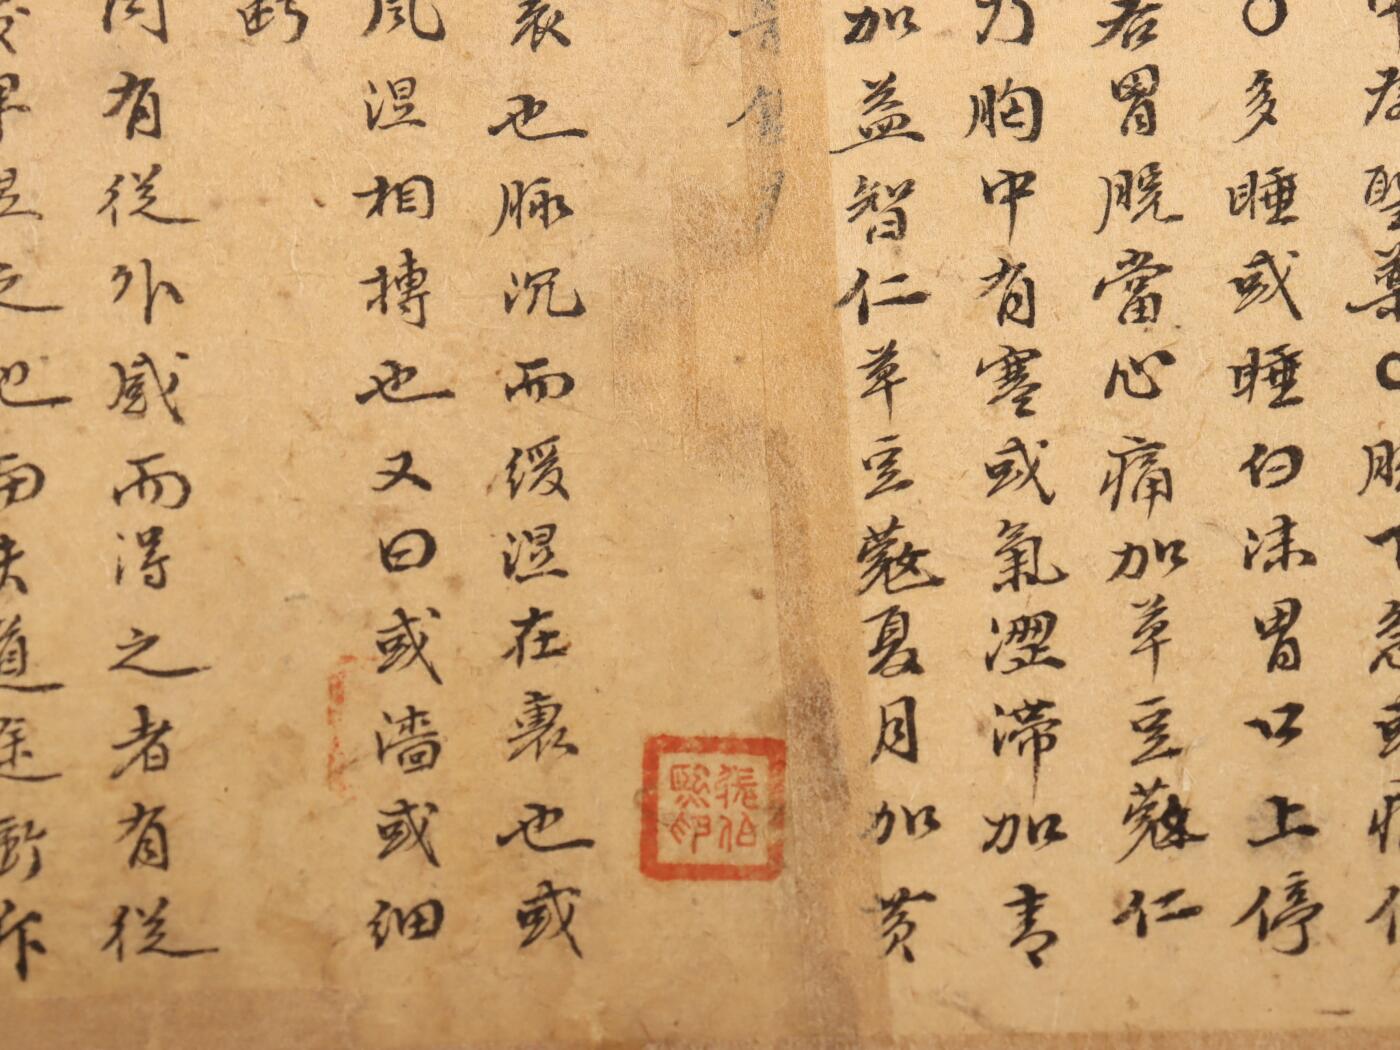 下急或痛
多睡或睡中白沫胃口上停
若胃脘當心痛加草豆蔻仁
乃胸中有寒或氣澀滯加青
加益智仁草豆蔻夏月加黃
張伯熙印
裏也脉沉而緩濕在裏也或
風濕相搏也又曰或濇或細
斷
有從外感而得之者有從
之也而失道